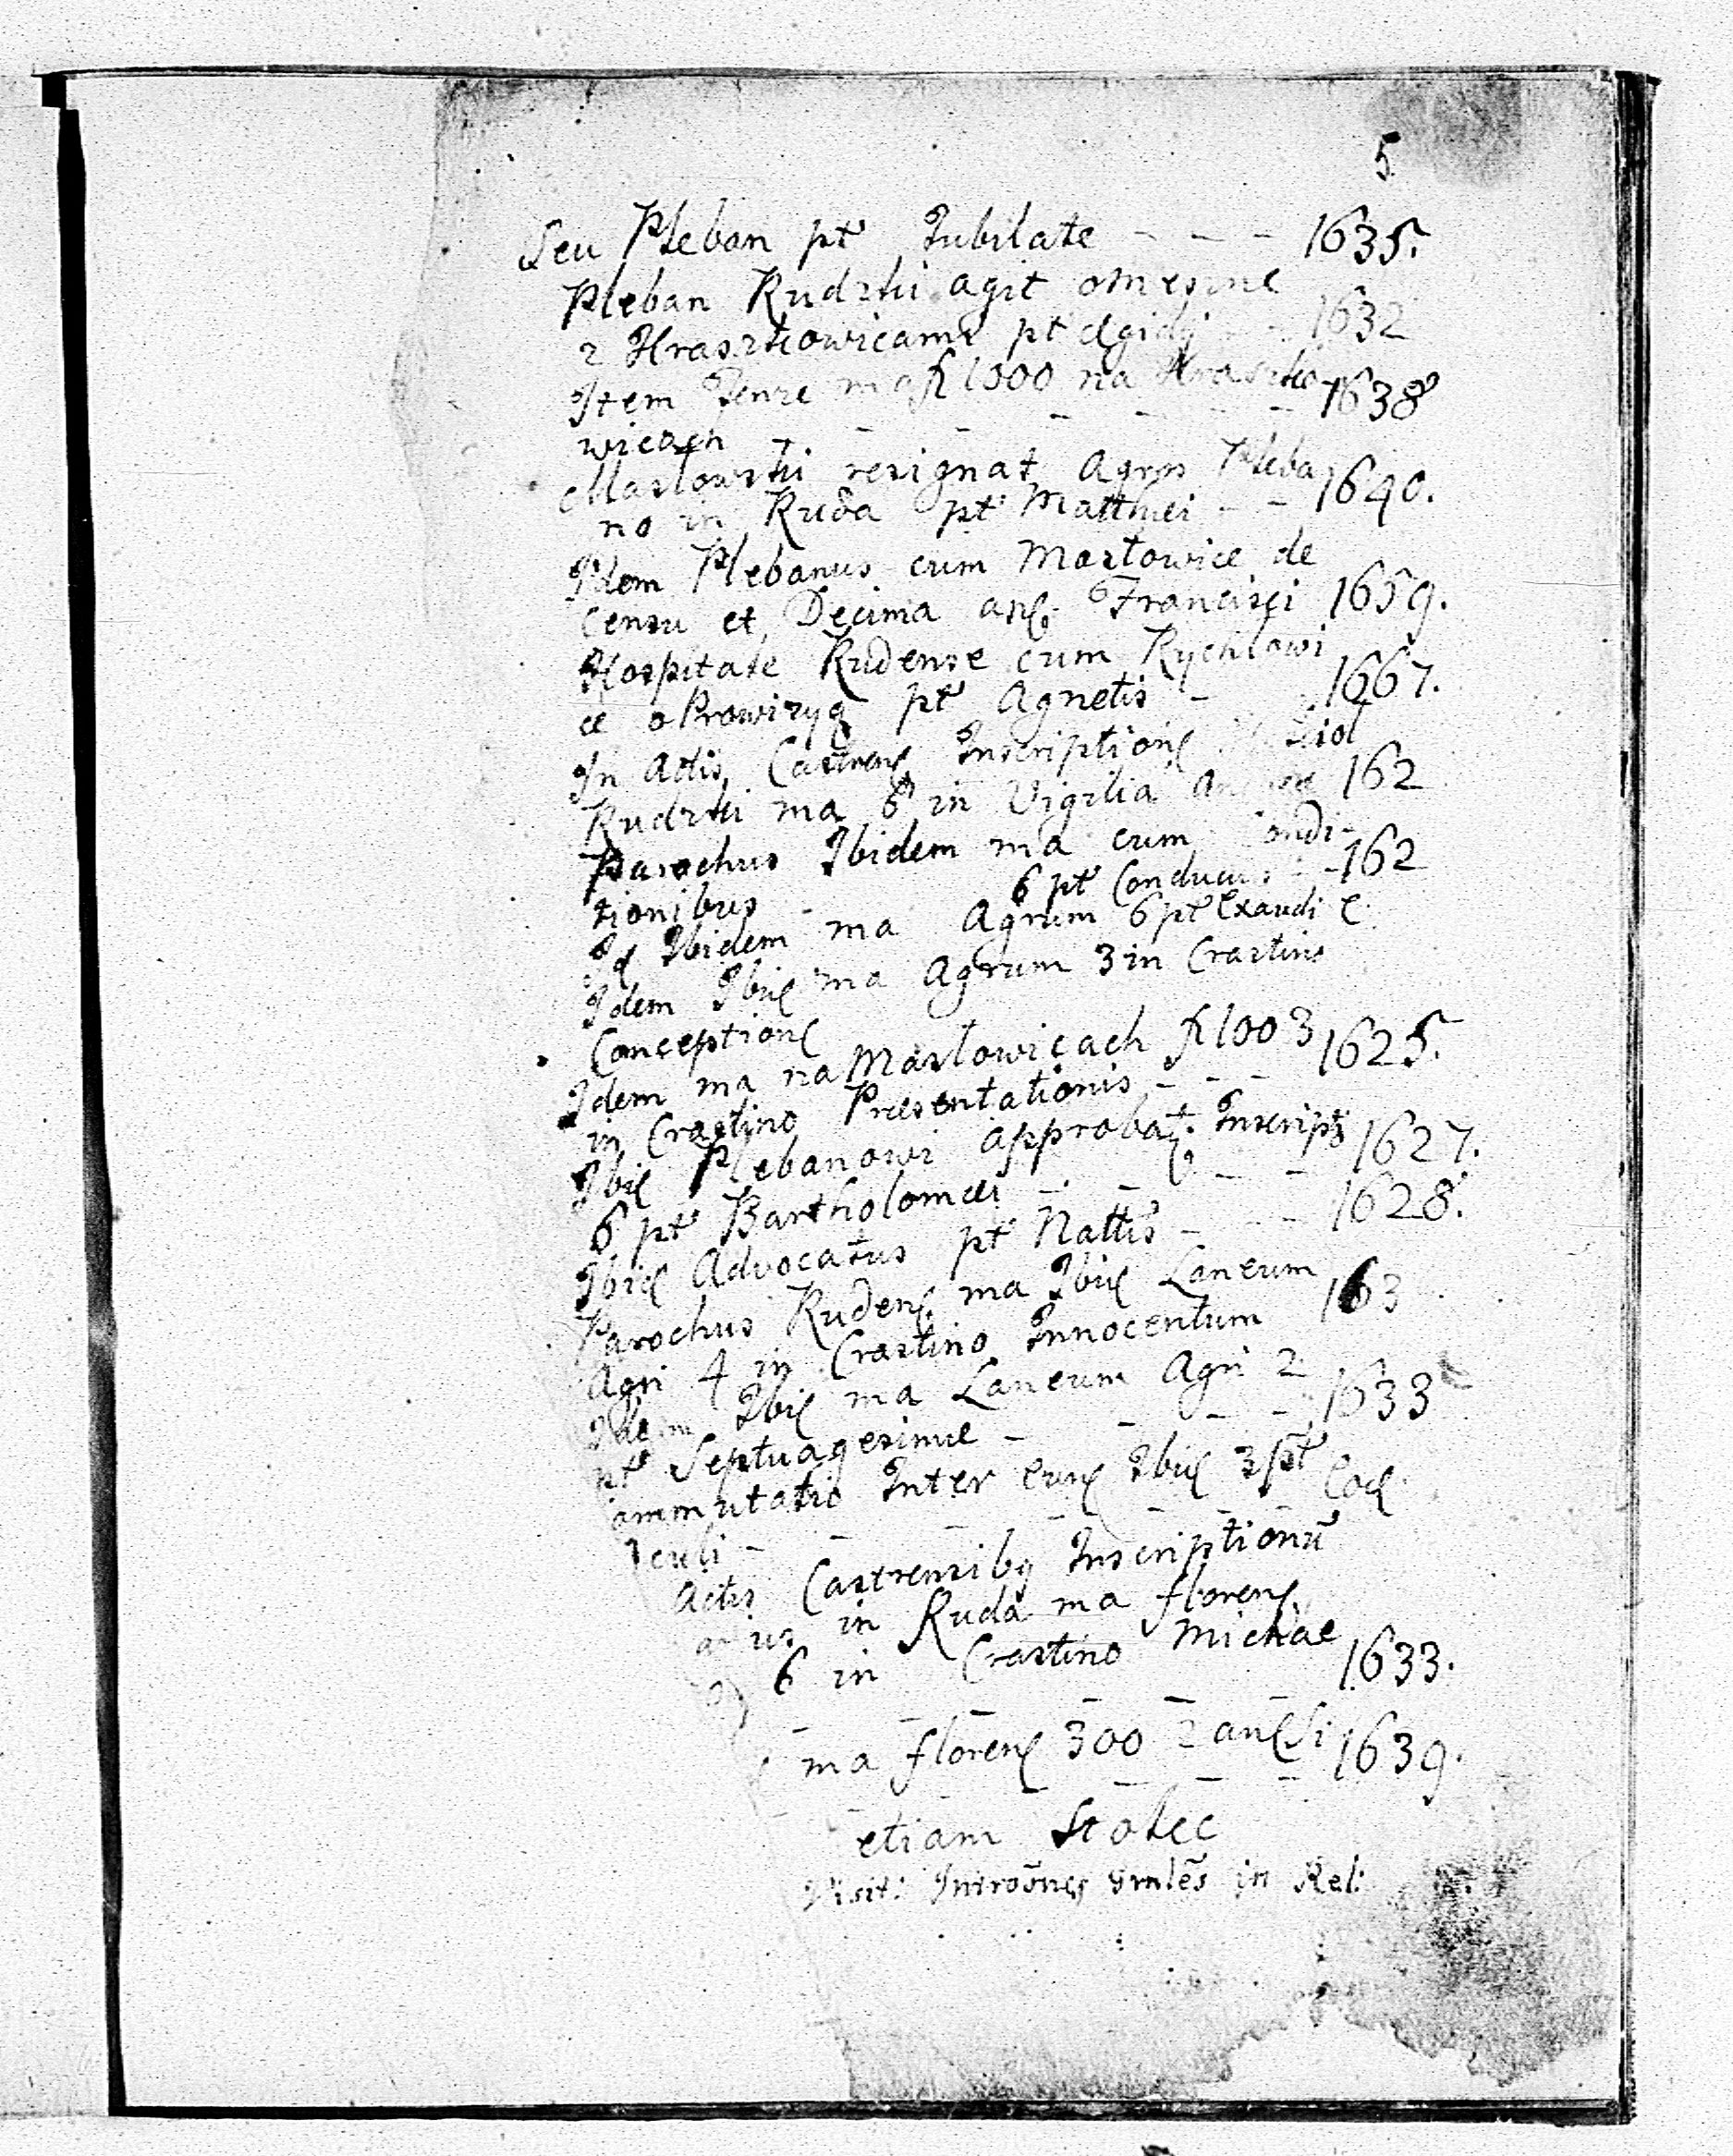 5.
Seu Pleban pt Jubilate - - - 1635.
Pleban Rudzki agit o Meszne
z Kraszkowicami pt Ægidij - - 1632
Item Tenze ma fl 1000 na Kraszko
wicach - - - - - - 1638
Masłowski resignat Agros Pleba
no in Ruda pt Matthæi - - 1640.
Idem Plebanus cum Masłowice de
Censu et Decima 
Francisci 1659.
Hospitale Rudense cum Rychłowi
ce o Prowizyą pt Agnetis - 1667.
In Actis Castren Inscription
Rudzki ma 6 in Vigilia 162
Parochus Ibidem ma cum Condi-
tionibus - 6 pt Conduct - - 162
Id Ibidem ma Agrum 6 pt Exaudi
Idem Ibid ma Agrum 3 in Crastino
Conception
Idem ma na Masłowicach fl 100 3
in Crastino Præsentationis - - - 1625.
Ibid Plebanowi approbat Inscript
6 pt Bartholomæi - - - - 1627.
Ibid Advocatus pt Nattis - - - 1628.
Parochus Ruden ma Ibid Laneum
Agri 4 in Crastino Innocentum 163
Idem Ibid ma Laneum Agri 2
pt Septuagesimæ - - - - 1633
ommutatio Inter Eund Ibid 3 pt
culi - - - - - Eod
Actis Castrensibq Inscriptionū
us in Ruda ma floren
6 in Crastino Michae
- - - - - 1633.
ma floren 300 2 1639.
etiam Stolec
Visit: in Rel: